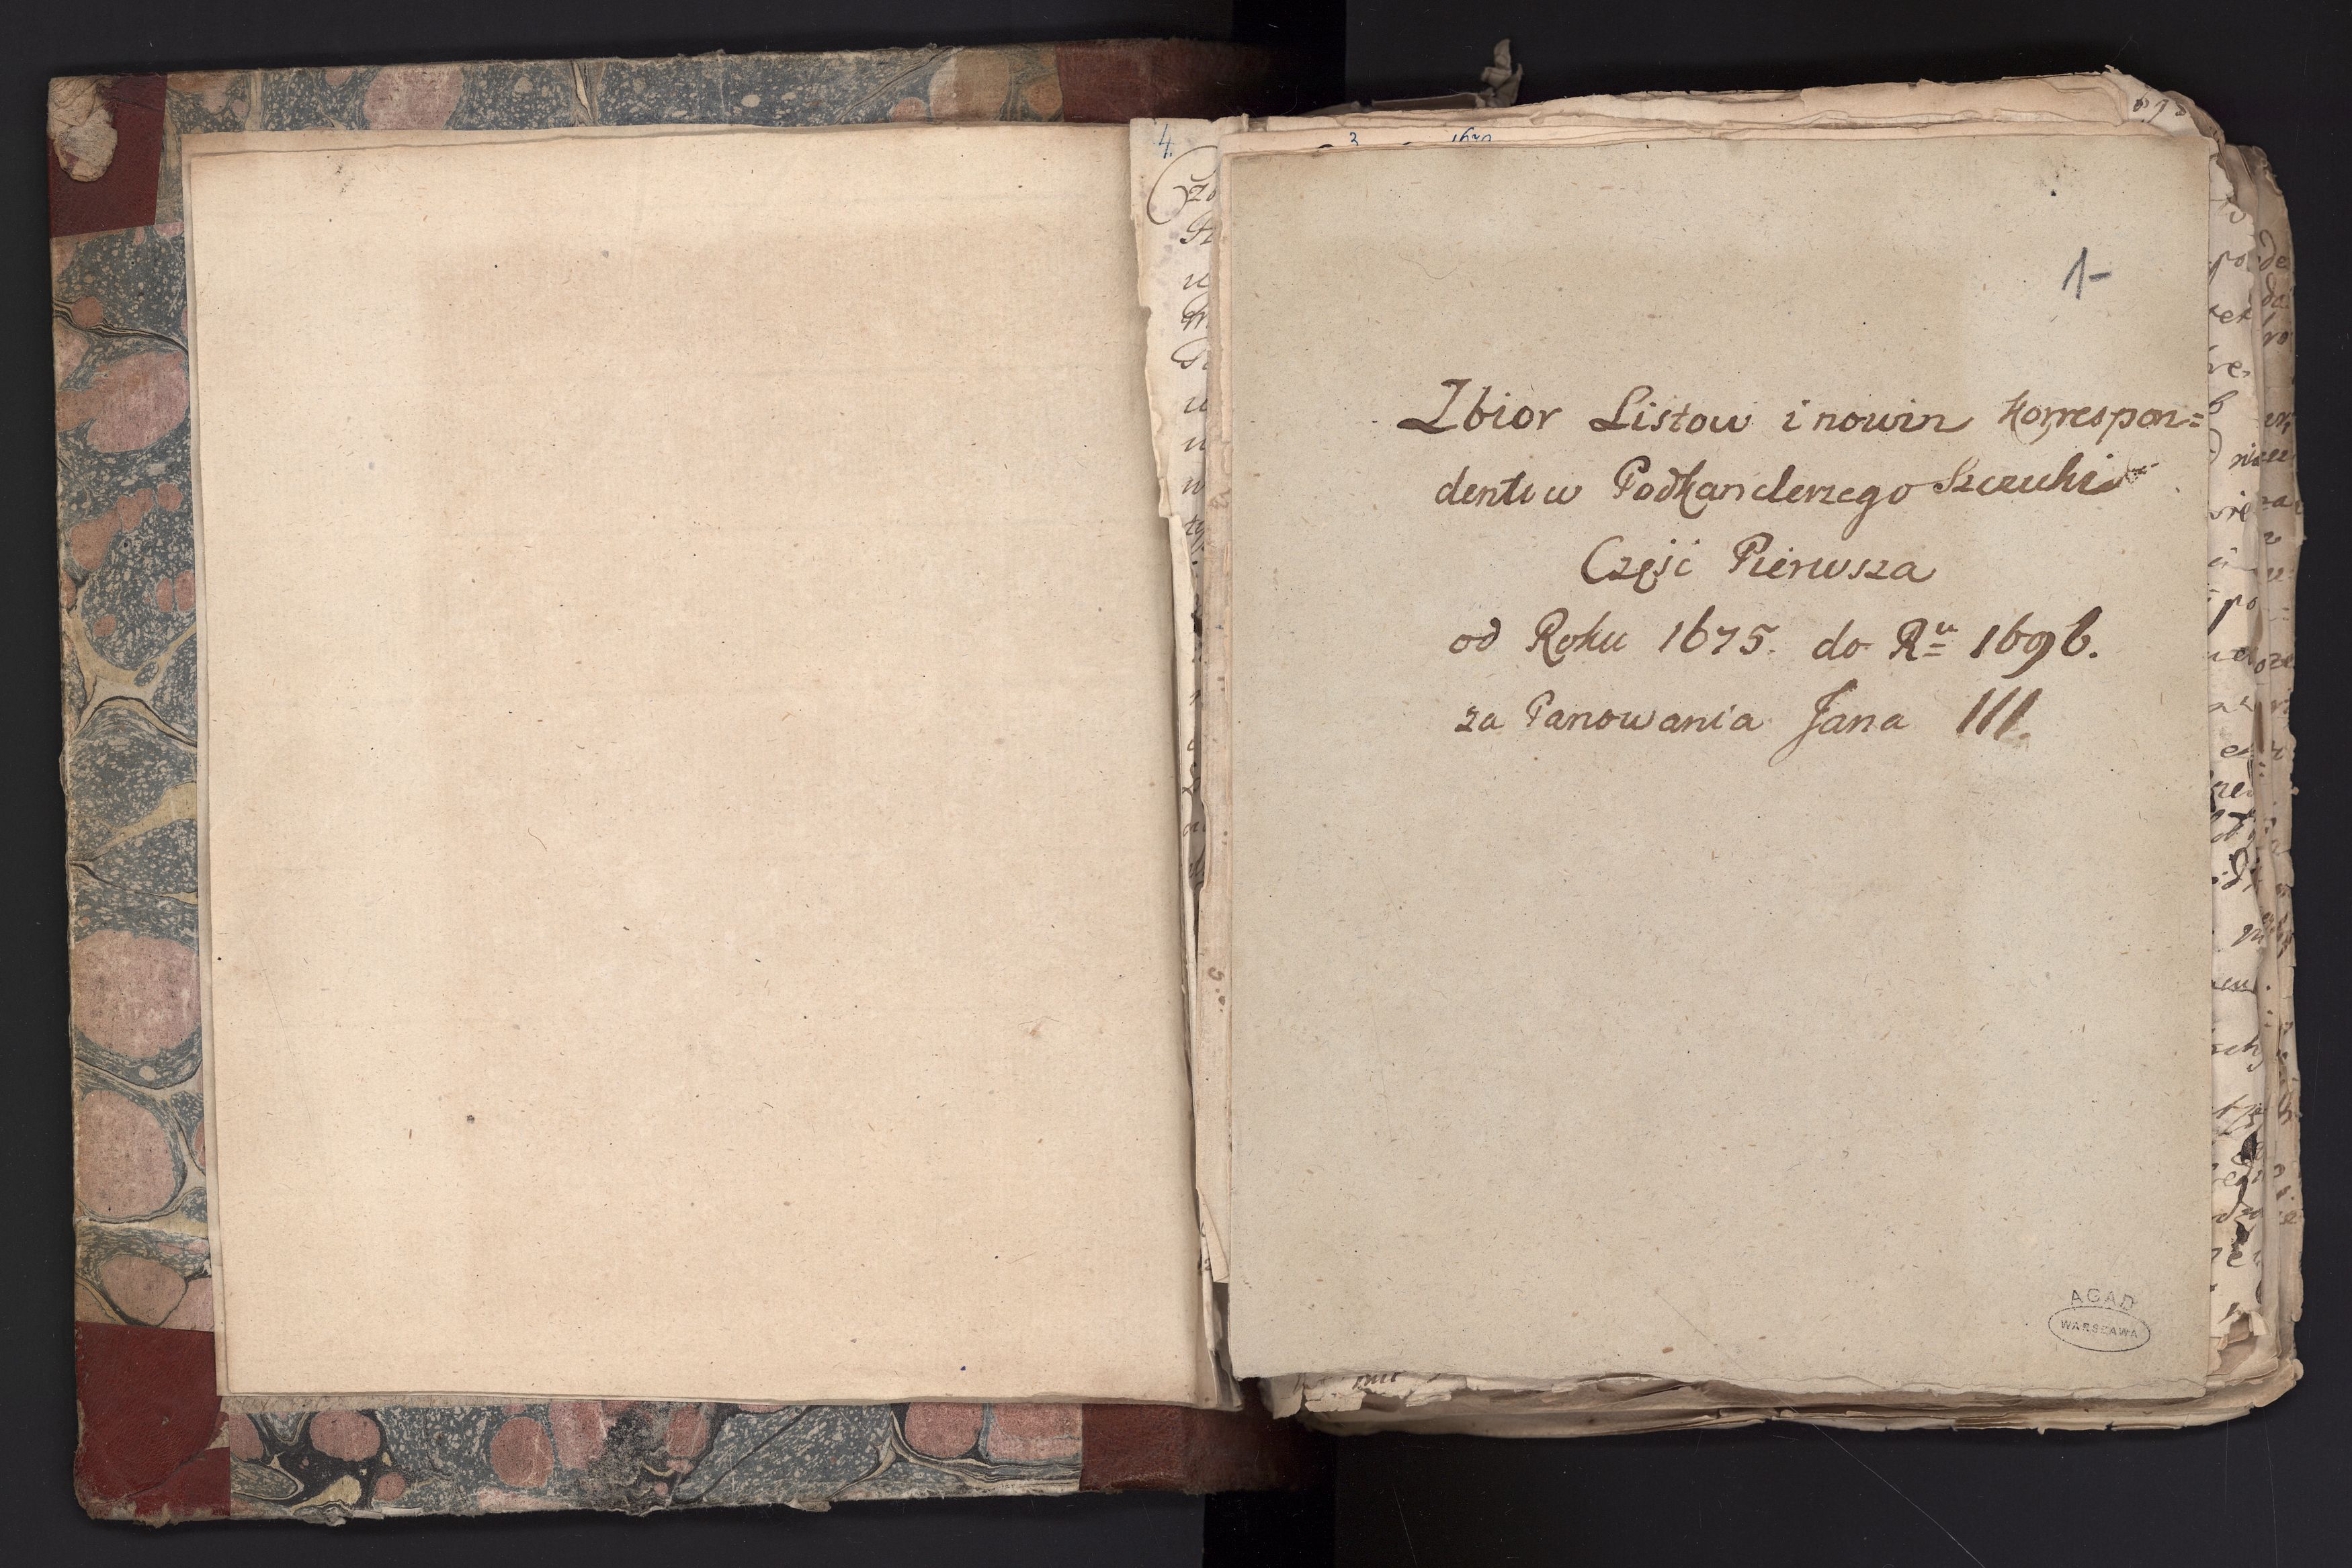 1
Zbior Listow i nowin Korrespon=
dentow Podkanclerzego Szczuki
Częśi Pierwsza
od Roku 1675. do Rᵘ 1696.
za Panowania Jana III.
AGAD
WARSZAWA
4.
3